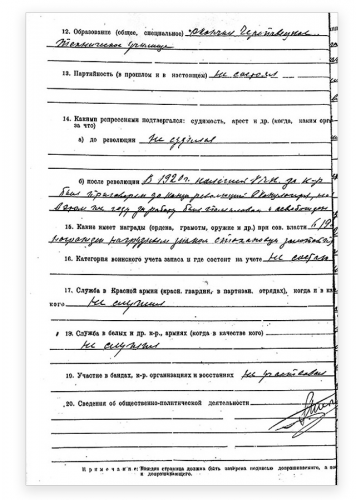 12. Образование (общее, специальное) окончил Череповецкое
Техническое училище
13. Партийность (в прошлом и в настоящем) Не состоял
14. Каким репрессиям подвергался: судимость, арест и др. (когда, каким орга
за что)
а) до революции Не судился
б) после революции В 1920 г. за к-р
был приговорен
году был и освобожден
15. Какие имеет награды (ордена, грамоты, оружие и др.) при сов. власти в 19
награжден нагрудным знаком
16. Категория воинского учета запаса и где состоит на учете Не состоит
17. Служба в Красной армии (красн. гвардии, в партизан. отрядах), когда и в ка
кого Не служил
18. Служба в белых и др. к-р. армиях (когда в качестве кого)
Не служил
19. Участие в бандах, к-р. организациях и восстаниях Не участвовал
20. Сведения об общественно-политической деятельности
Примечание: Каждая страница должна быть заверена подписью допрашиваемого, а по
и допрашивающего.